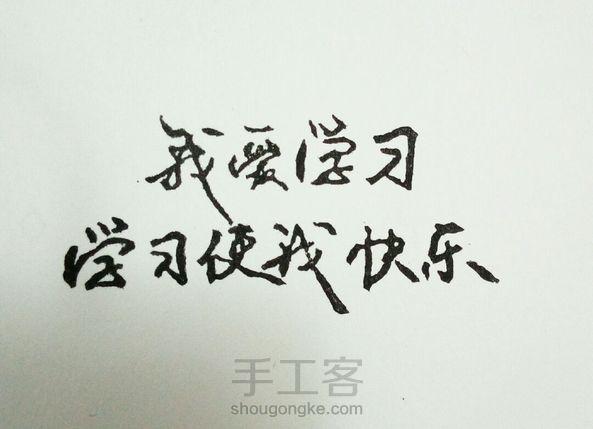 我爱学习
学习使我快乐
手工客
shougongke.com